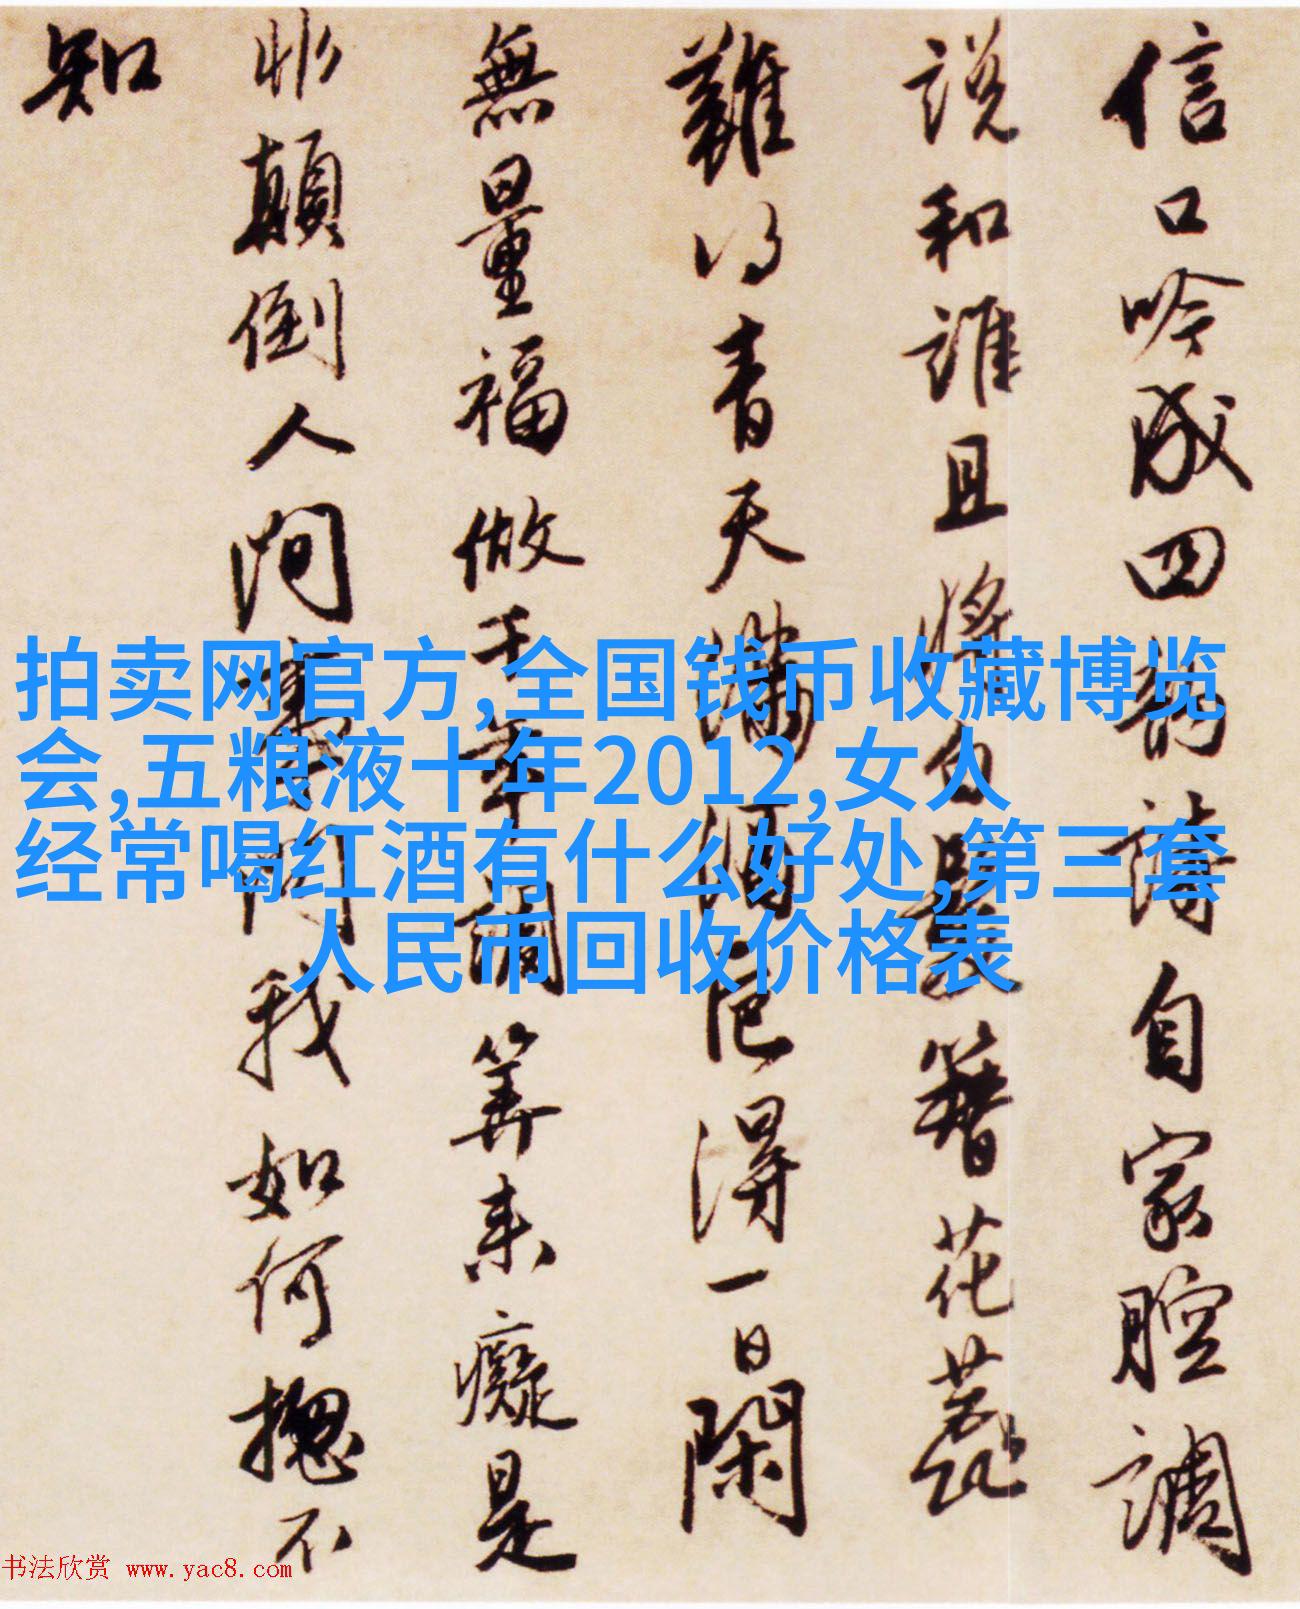 信口吟成四韵詩自家腔調
説和誰且將白髮簪花蕊
難得青天滿酒巵得一日閑
無量福做千年調算来癡是
非顛倒人間事問我如何揔不
知
拍卖网官方,全国钱币收藏博览
会,五粮液十年2012,女人
经常喝红酒有什么好处,第三套
人民币回收价格表
书法欣赏 www.yac8.com